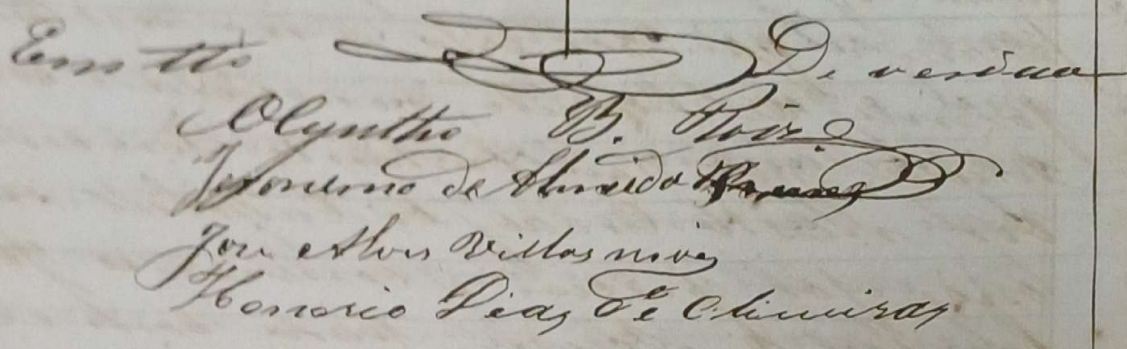 Em ttº De verdade
Olyntho B. Roiz
Jeronimo de Almeida
Jose Alves Villas novas
Honorio Dias de Oliveiras